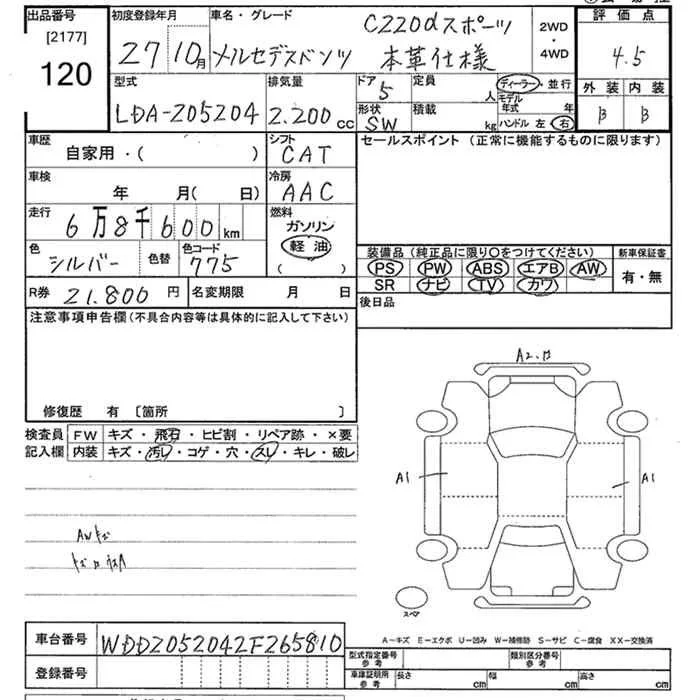 出品番号 初度登録年月 車名・グレード C220dスポーツ 2WD・4WD 評価点
[2177] 27 10月 メルセデスベンツ 本革仕様 4.5
120
型式 排気量 ドア 定員 ディーラー・並行 外装 内装
LDA-205204 2.200cc 5 人 モデル年式 年 B B
形状 積載
SW kg ハンドル 左 右
車歴 シフト セールスポイント (正常に機能するものに限ります)
自家用・( ) CAT
車検 冷房
年 月( 日) AAC
走行 燃料
6万8千600km ガソリン
軽油
( )
色 色替 色コード 装備品 (純正品に限り○をつけてください) 新車保証書
シルバー 775 PS PW ABS エアB AW 有・無
SR ナビ TV カワ
R券 21.800円 名変期限 月 日 後日品
注意事項申告欄(不具合内容等は具体的に記入して下さい)
修復歴 有 [箇所 ]
A2.
検査員 FW キズ・飛石・ヒビ割・リペア跡・×要
記入欄 内装 キズ・汚レ・コゲ・穴・スレ・キレ・破レ
A1 A1
AWキズ
スペア
A-キズ E-エクボ U-凹み W-補修跡 S-サビ C-腐食 XX-交換済
車台番号 WDD2052042F265810
登録番号
型式指定番号 参考 類別区分番号 参考
車庫証明所 参考 長さ cm 幅 cm 高さ cm